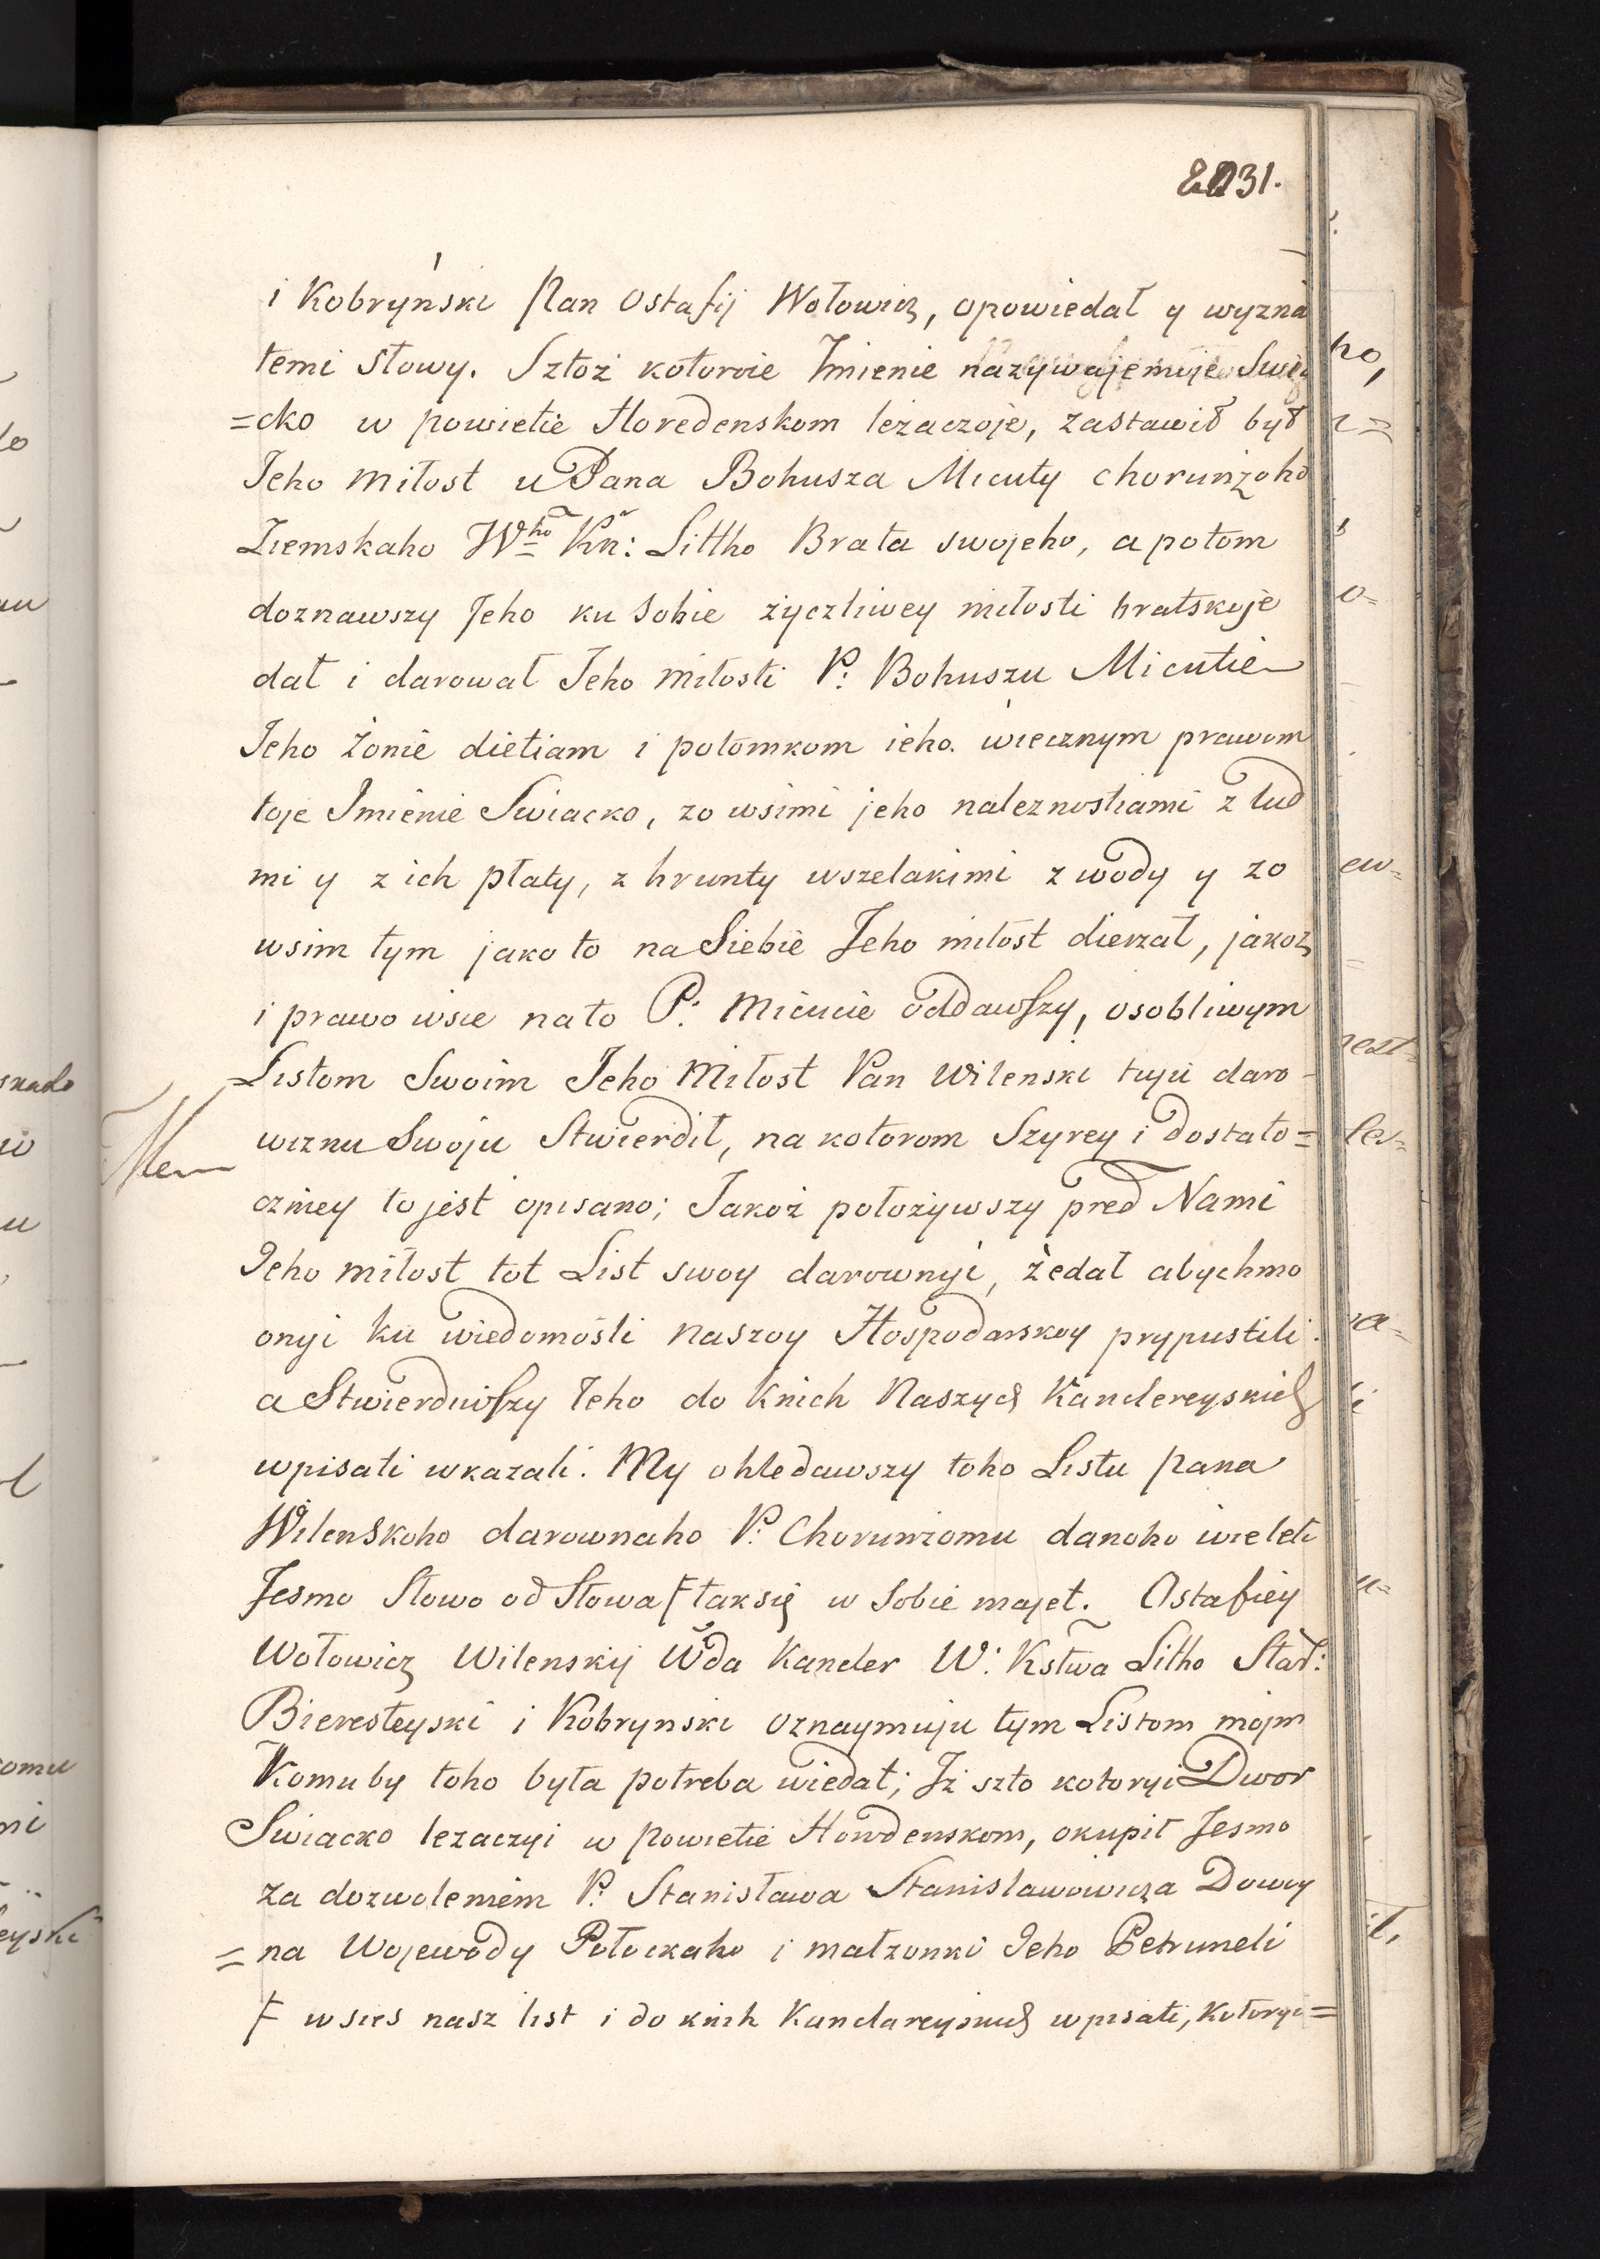 31.
i Kobryński Pan Ostafij Wołowicz, opowiedał y wyzna
temi słowy. Sztoż kotoroie Imienie nazywajemoje Swią
=cko w powietie Horedenskom leżaczoje, zastawił był
Jeho miłost u Pana Bohusza Micuty chorunżoho
Ziemskaho Wħo Kn: Littho Brata swojeho, a potom
doznawszy Jeho ku sobie życzliwey miłosti bratskoje
dał i darował Jeho miłosti P: Bohuszu Micutie
Jeho żonie dietiam i potomkom ieho. wiecznym prawom
toje Imienie Swiacko, zo wsimi jeho naleznostiami z lud
mi y z ich płaty, z hrunty wszelakimi z wody y zo
wsim tym jako to na Siebie Jeho miłost dierżał, jakoż
i prawo wsie na to P: Micucie oddawszy, osobliwym
Listom Swoim Jeho Miłost Pan Wilenski tuju daro-
wiznu Swoju Stwierdił, na kotorom Szyrey i dostato=
czniey to jest opisano; Jakoż położywszy pred Nami
Jeho miłost tot List swoy darownyi, żedał abychmo
onyi ku wiedomosti naszoy Hospodarskoy prypustili
a Stwierdiwszy Jeho do Knich Naszych Kanclereyskich
wpisati wkazali. My ohledawszy toho Listu Pana
Wilenskoho darownaho P: Chorunżomu danoho wieleli
Jesmo Słowo od Słowa Ƒ tak się w Sobie majet. Ostafiey
Wołowicz Wilenskij Wda Kancler W: Kstwa Litho Star:
Bieresteyski i Kobrynski oznaymuju tym Listom mojm
Komu by toho była potreba wiedat; Iż szto kotoryi Dwor
Swiacko lezaczyi w Powietie Horodenskom, okupił Jesmo
Za dozwoleniem P: Stanisława Stanislawowicza Dowoy
=na Wojewody Połockaho i małzonki Jeho Petruneli
Ƒ w sies nasz list i do knih Kanclareyskich wpisati, kotoryi=